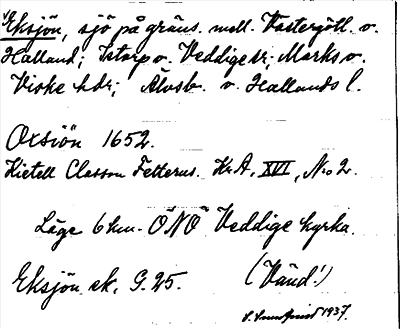 Eksjön, sjö på gräns. mell. Västergötl. o.
Halland; Istorp o. Veddige sr; Marks o.
Viske hdr; Älvsb. o. Hallands l.
Oxsiön 1652.
Kietell Classon Fetterus. Kr.A, XVI, No 2.
Läge 6 km. ÖNÖ Veddige kyrka.
Eksjön ek. G. 25. (Vänd!)
1937.